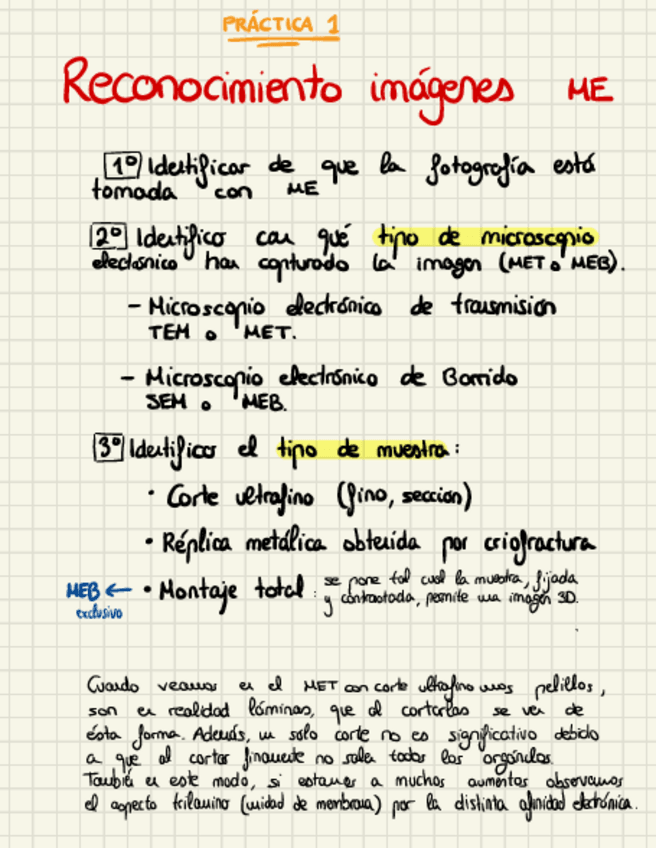 PRÁCTICA 1
Reconocimiento imágenes ME
1º Identificar de que la fotografía está
tomada con ME
2º Identifico con qué tipo de microscopio
electrónico han capturado la imagen (MET o MEB).
- Microscopio electrónico de transmisión
TEM o MET.
- Microscopio electrónico de Barrido
SEM o MEB.
3º Identifico el tipo de muestra:
· Corte ultrafino (fino, sección)
· Réplica metálica obtenida por criofractura
MEB ← · Montaje total: se pone tal cual la muestra, fijada
exclusivo y contrastada, permite una imagen 3D.
Cuando veamos en el MET con corte ultrafino unos pelillos,
son en realidad láminas, que al cortarlas se ven de
ésta forma. Además, un solo corte no es significativo debido
a que al cortar finamente no salen todos los orgánulos.
También en este modo, si estamos a muchos aumentos observamos
el aspecto trilamino (unidad de membrana) por la distinta afinidad electrónica.